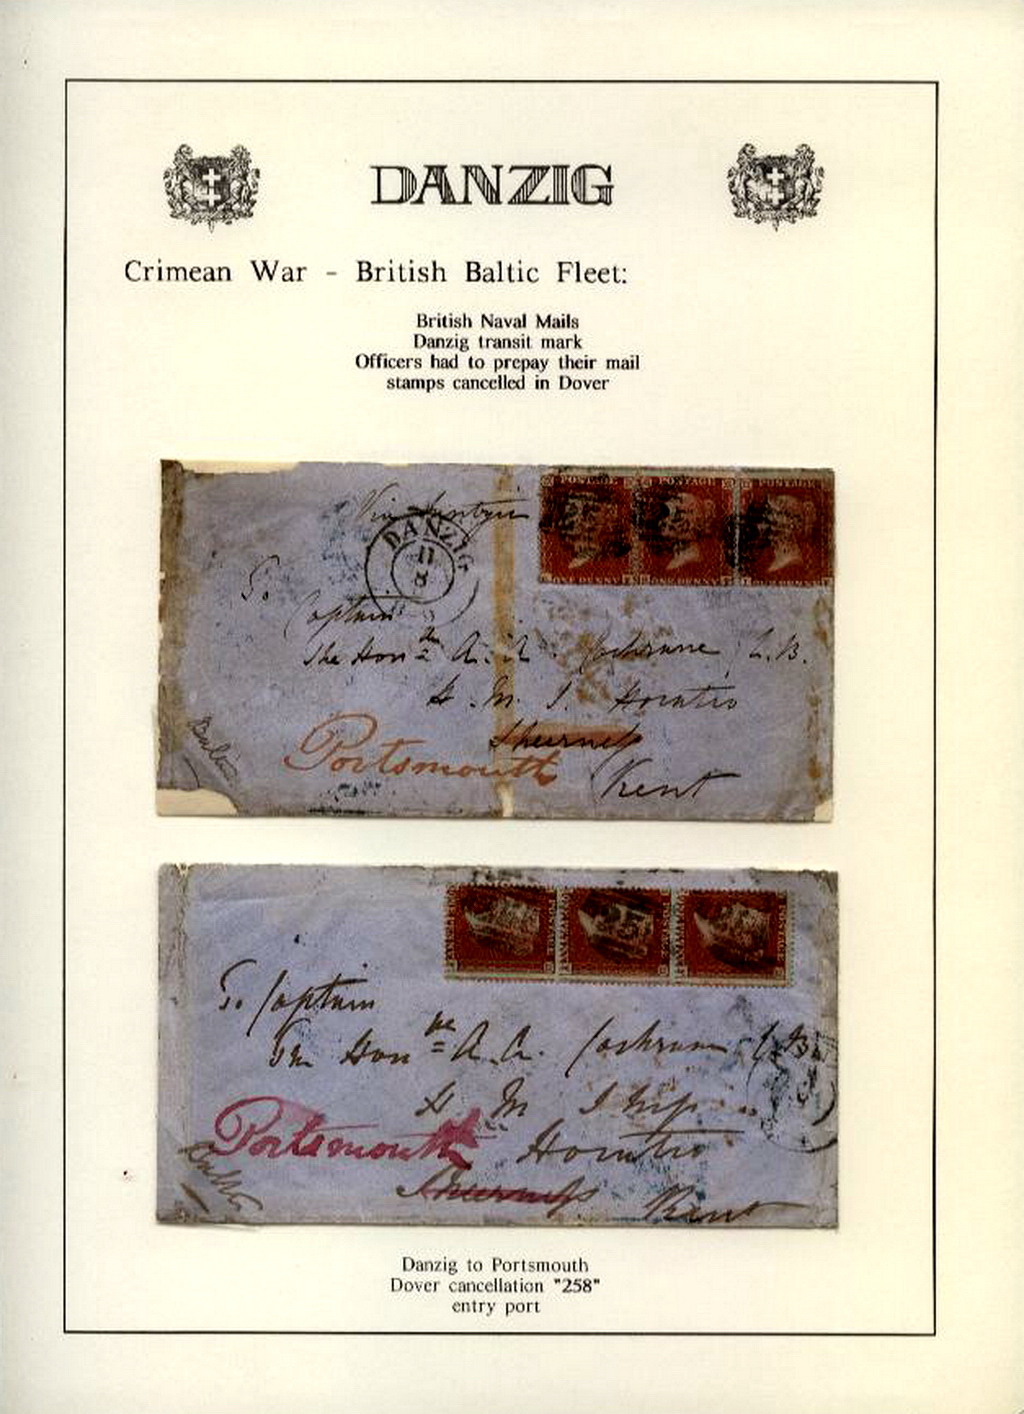 DANZIG
Crimean War - British Baltic Fleet:
British Naval Mails
Danzig transit mark
Officers had to prepay their mail
stamps cancelled in Dover
POSTAGE POSTAGE POSTAGE
ONE PENNY ONE PENNY ONE PENNY
Via
DANZIG
11
8
To
Captain
The Honble A. A. Cochrane C.B.
H. M. S. Horatio
Sheerness
Portsmouth
Kent
To Captain
The Honble A. A. Cochrane C.B.
H M Ship
Portsmouth Horatio
Sheerness Kent
Danzig to Portsmouth
Dover cancellation "258"
entry port